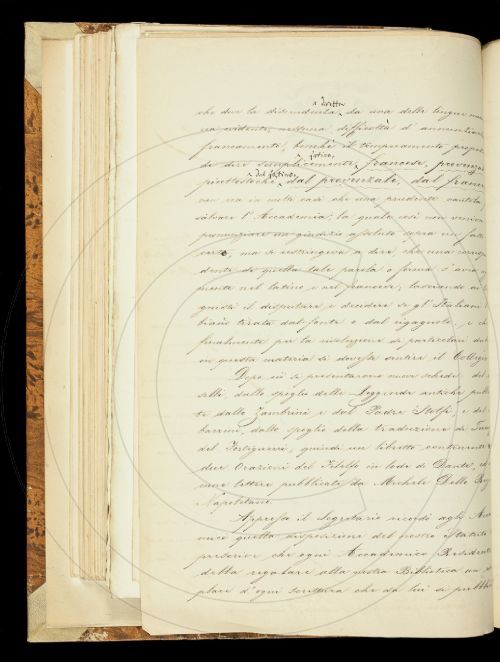 o diritta
che dice la discendenza, da una delle lingue
sia evidente, nessuna difficoltà d'annunziarla
francamente, benchè il temperamento
latino,
di dire semplicemente, francese, provenzale
o dal latino,
piuttostochè, dal provenzale, dal francese
non sia in molti casi che una prudente cautela
salvare l'Accademia; la quale così non veniva
pronunziare un giudizio assoluto sopra un fatto
certo, ma si restringeva a dire, che una
dente di quella tale parola o forma s'aveva
mente nel latino e nel francese, lasciando ai
guisti il disputare e decidere se gl'Italiani
tirata dal fonte o dal rigagnolo: e
finalmente per la risoluzione di particolari
in questa materia si dovesse sentire il Collegio
Dopo ciò si presentarono nuove schede
dallo spoglio delle Leggende antiche
te dallo Zambrini e dal Padre
dallo spoglio della traduzione di
del Fortiguerri, quindi un libretto contenente
dieci Orazioni del Filelfo in lode di Dante,
cune lettere pubblicate da Michele Dello
Napoletano.
Appresso il Segretario ricordò agli
mici quella disposizione del nostro Statuto
prescrive che ogni Accademico Residente
debba regalare alla nostra Biblioteca un
plare d'ogni scrittura che da lui si